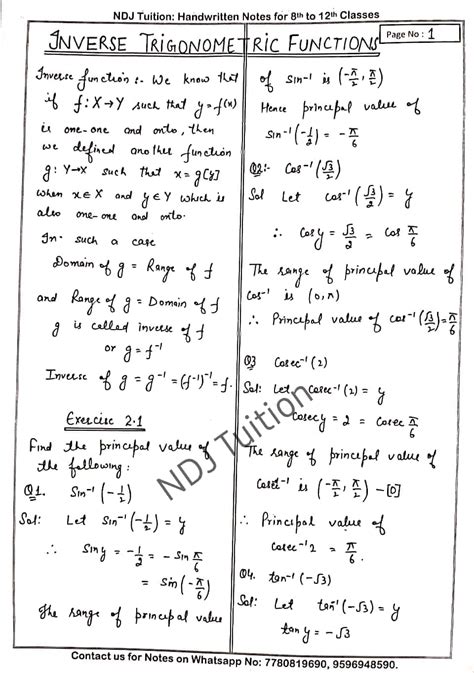 NDJ Tuition: Handwritten Notes for 8th to 12th Classes
INVERSE TRIGONOMETRIC FUNCTIONS
Page No : 1
Inverse function :- We know that
if f: X→Y such that y = f(x)
is one-one and onto, then
we defined another function
g: Y→X such that x = g[y]
when x∈X and y∈Y which is
also one-one and onto.
In such a case
Domain of g = Range of f
and Range of g = Domain of f
g is called inverse of f
or g = f⁻¹
Inverse of g = g⁻¹ = (f⁻¹)⁻¹ = f.
Exercise 2.1
Find the principal value of
the following:
Q1. Sin⁻¹(-1/2)
Sol: Let Sin⁻¹(-1/2) = y
∴ Sin y = -1/2 = - Sin π/6
= Sin(-π/6)
The range of principal value
of Sin⁻¹ is (-π/2, π/2)
Hence principal value of
Sin⁻¹(-1/2) = -π/6
Q2:- Cos⁻¹(√3/2)
Sol Let Cos⁻¹(√3/2) = y
∴ Cos y = √3/2 = Cos π/6
The range of principal value of
Cos⁻¹ is (0, π)
∴ Principal value of Cos⁻¹(√3/2) = π/6
Q3 Cosec⁻¹(2)
Sol: Let Cosec⁻¹(2) = y
Cosec y = 2 = Cosec π/6
The range of principal value of
Cosec⁻¹ is (-π/2, π/2) - [0]
∴ Principal value of
Cosec⁻¹2 = π/6.
Q4. tan⁻¹(-√3)
Sol: Let tan⁻¹(-√3) = y
tan y = -√3
NDJ Tuition
Contact us for Notes on Whatsapp No: 7780819690, 9596948590.